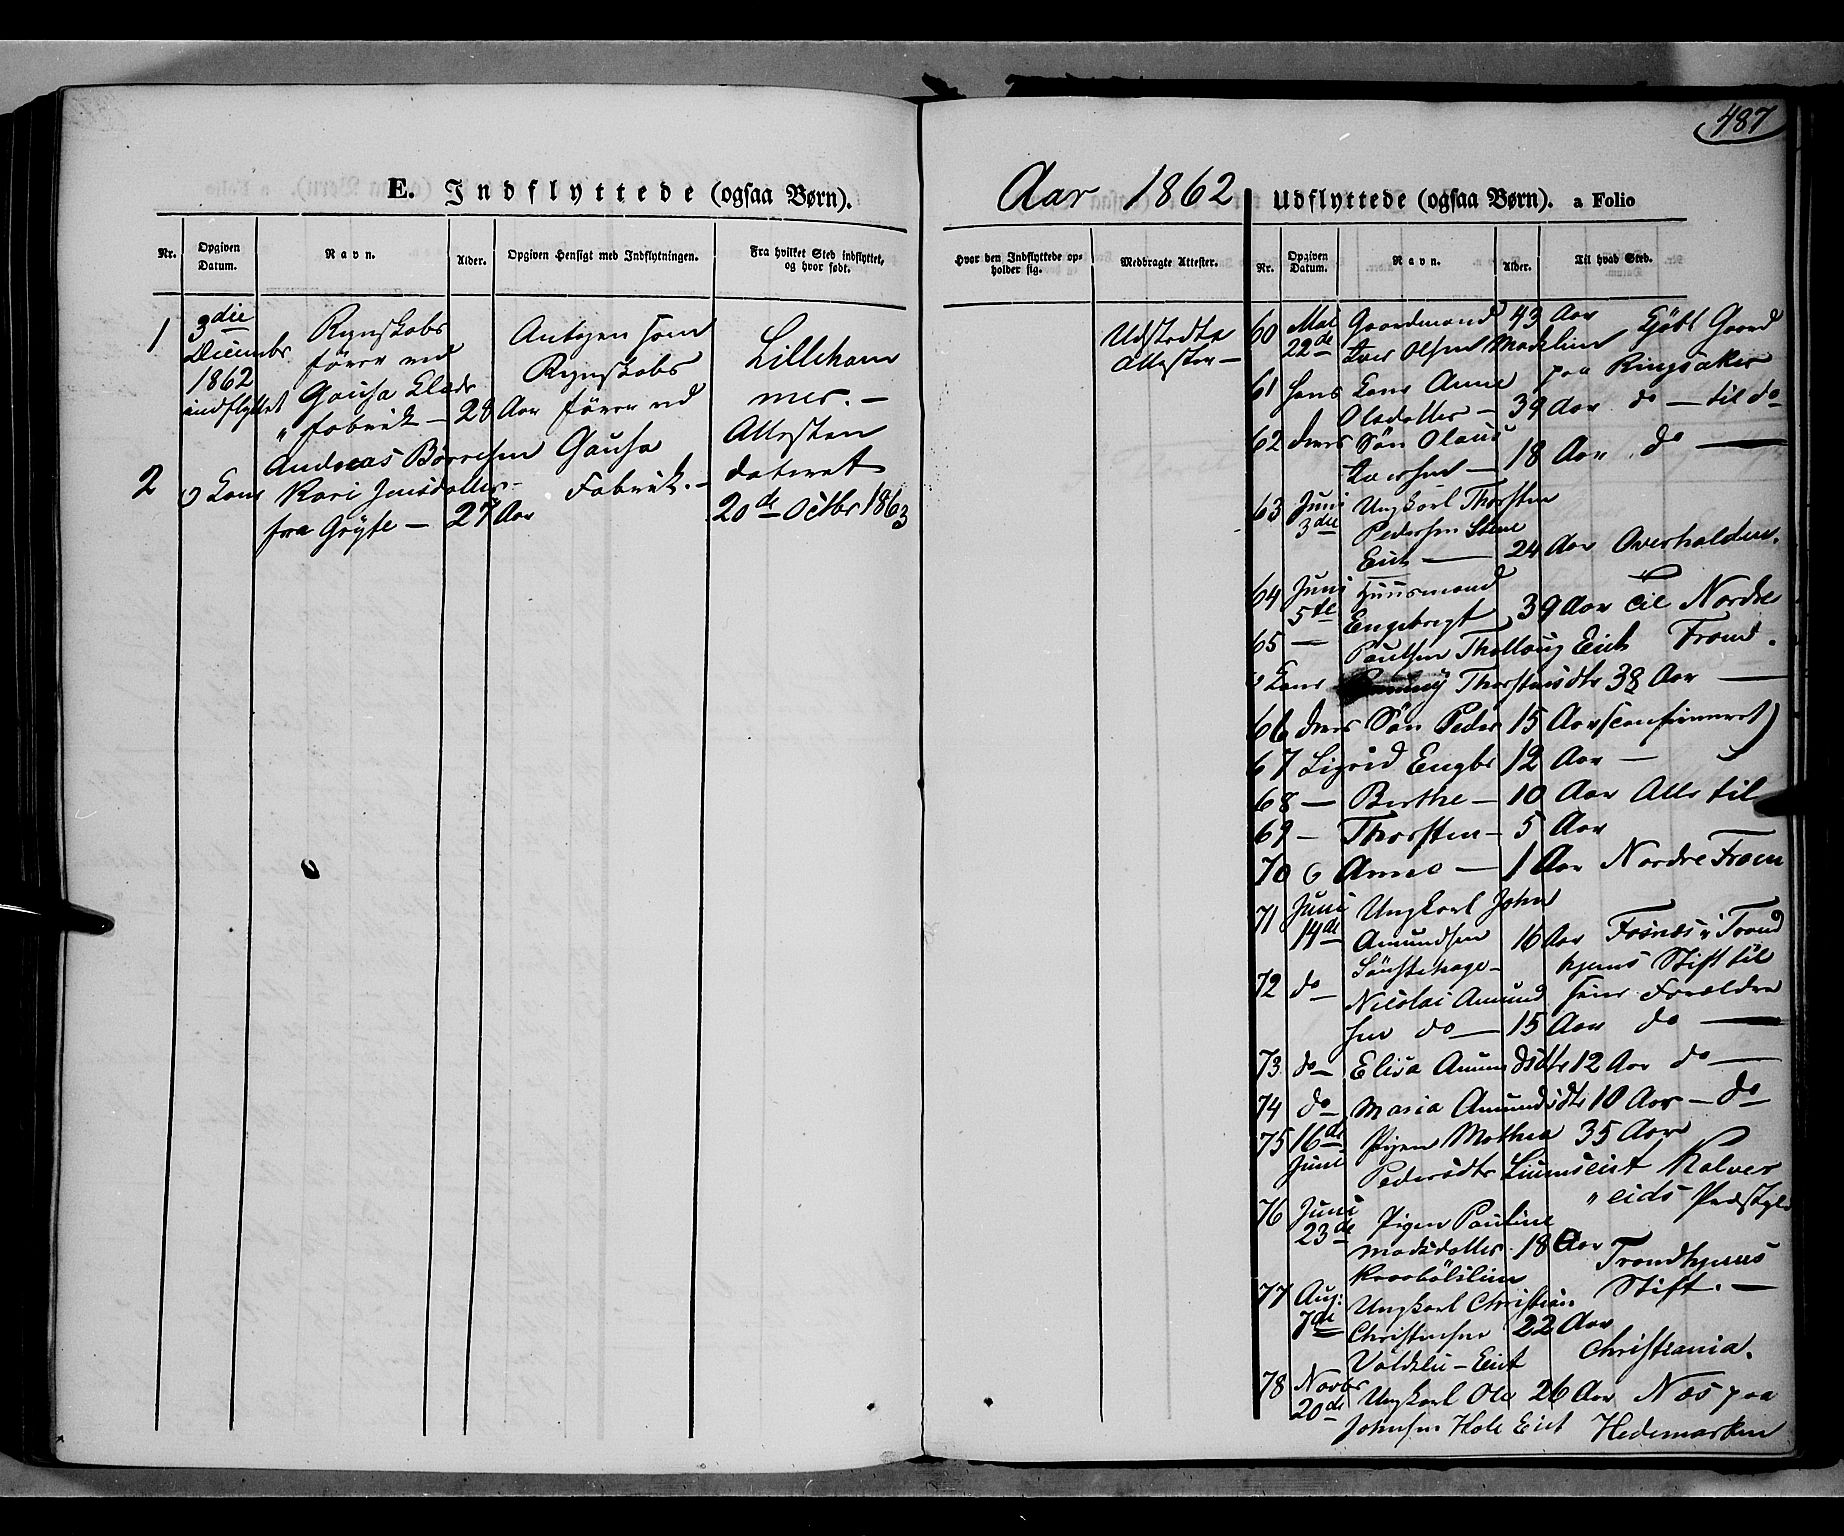 487
E. Indflyttede (ogsaa Børn).
Aar 1862
Udflyttede (ogsaa Børn). a Folio
Nr.
Opgiven Datum.
Navn.
Alder.
Opgiven Hensigt med Indflytningen.
Fra hvilket Sted indflyttet, og hvor født.
Hvor den Indflyttede opholder sig.
Medbragte Attester.
Nr.
Opgiven Datum.
Navn.
Alder.
Til hvad Sted.
1 3die Regnskabs Antagen som Lilleham
Decembr fører ved Regnskabs mer. —
1862 Gausa Klæde
indflyttet " fabrik — 28 Aar fører ved Attesten
Andreas Børresen Gausa dateret
2 Kone Kari Jensdatter — Fabrik. — 20de Octbr 1863
fra Gryte — 27 Aar
Udstedte
Attester —
60 Mai Gaardmand 43 Aar Kjøbt Gaard
22de Iver Olsen Modelien paa Ringsaker
61 Hans Kone Anne
Olsdatter — 39 Aar do — til do
62 deres Søn Olaus
Iversen — 18 Aar do —
63 Juni Ungkarl Thorsten
3die Pedersen
Eiet — 24 Aar Overhalden.
64 Juni Huusmand
5te Engebregt 39 Aar til Nordre
65 — Paulsen Eiet Fron.
Kone Thorstensdtr 38 Aar —
66 deres Søn Peder 15 Aar (confirmeret)
67 Sigrid Engbr 12 Aar —
68 — Berthe — 10 Aar Alle til
69 — Thorsten — 5 Aar
70 Anne — 1 Aar Nordre Fron
71 Juni Ungkarl John
14de Amundsen 16 Aar Fosnæs i Trond
hjems Stift til
72 do — Nicolai Amund sine Forældre
sen do — 15 Aar do —
73 do — Elisa Amundsdtr 12 Aar do —
74 do — Maria Amundsdtr 10 Aar — do —
75 16de Pigen Mathea 35 Aar
Juni Pedersdtr Kolver
" eids Præstgld
76 Juni Pigen Pauline
23de Madsdatter 18 Aar Trondhjems
Stift. —
77 Aug: Ungkarl Christian
7de Christensen 22 Aar
— Eiet Christiania.
78 Novbr Ungkarl Ole 26 Aar Næs paa
20de Johnsen Hole Eiet Hedemarken